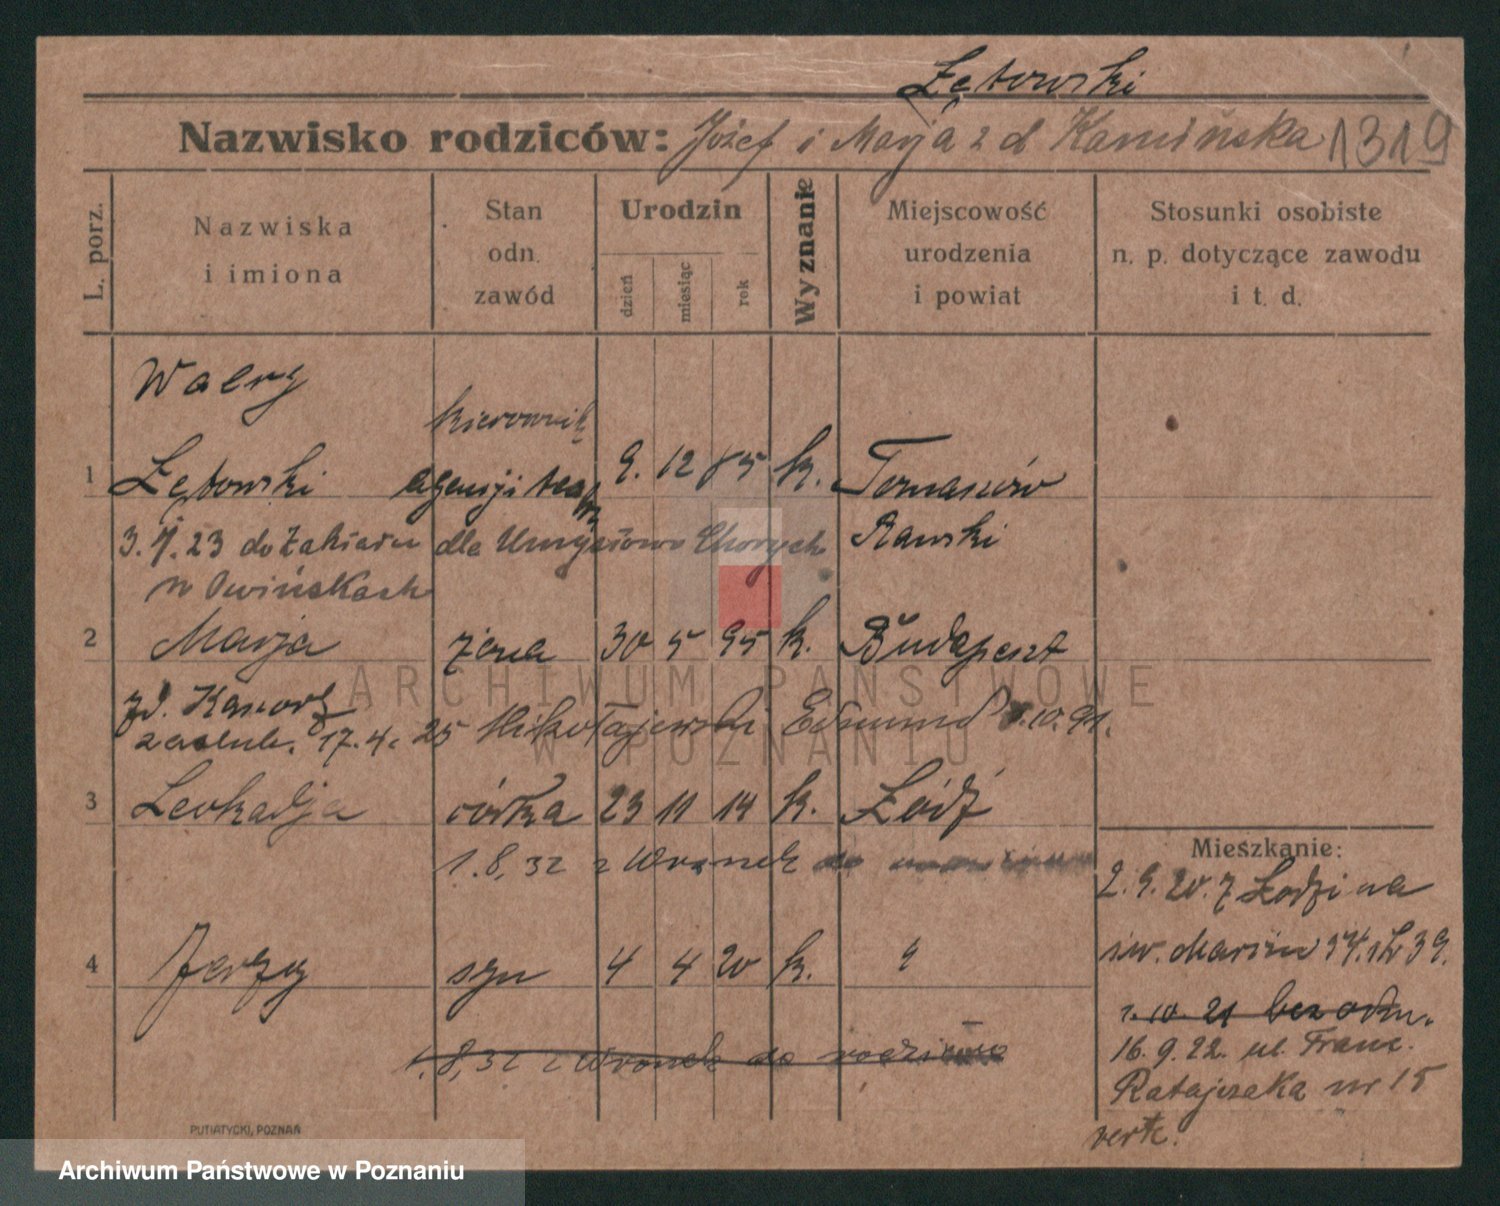 Łętowski
Nazwisko rodziców: Józef i Marja z d Kamińska 1319
L. porz.
Nazwiska i imiona
Stan odn. zawód
Urodzin
dzień
miesiąc
rok
Wyznanie
Miejscowość urodzenia i powiat
Stosunki osobiste n. p. dotyczące zawodu i t. d.
Walery
kierownik
1 Łętowski agencji teatr 9. 12 85 k. Tomaszów
3. 23 do Zakładu dla Umysłowo Chorych Rawski
w Owińskach
2 Marja żona 30 5 95 k. Budapeszt
zaślub. 17.4. 25 Mikołajewski Edmund 10. 91.
3 Leokadja córka 23 11 14 k. Łódź
1.8,32 z Wronek do
Mieszkanie:
2.9.20. z Łodzi na
św. Marcin
4 Jerzy syn 4 4 20 k.
1.10. 21 bez odm.
1.8,32 z Wronek do rodziców
16. 9. 22. ul. Franc.
Ratajczaka nr 15
PUTIATYCKI, POZNAŃ
ARCHIWUM PAŃSTWOWE
W POZNANIU
Archiwum Państwowe w Poznaniu